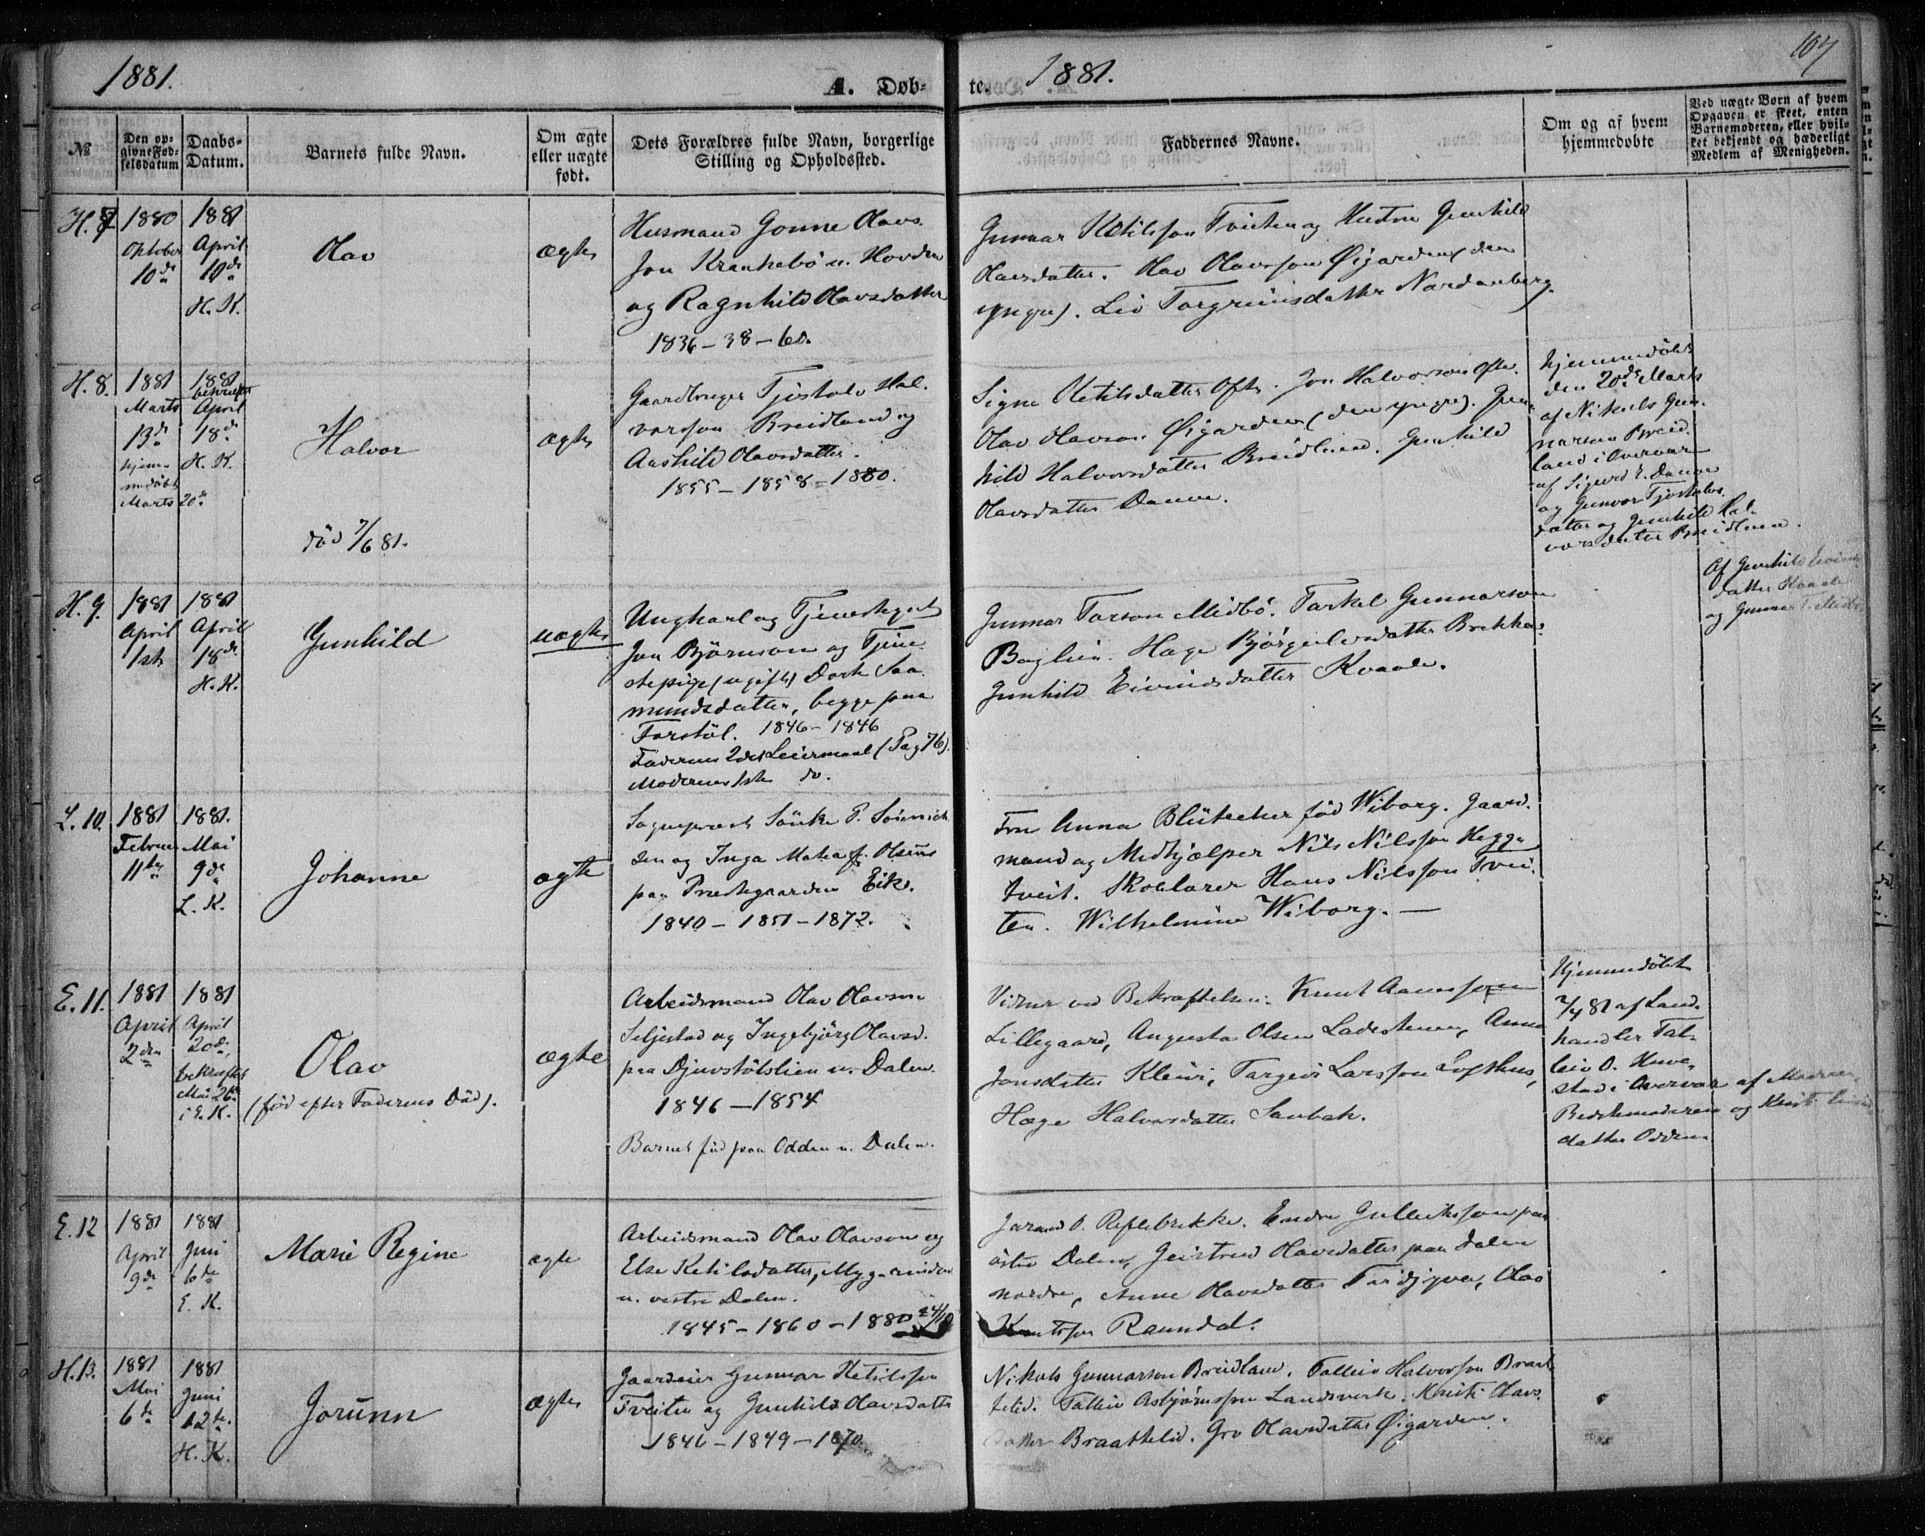 1881.
A. Døb-
te.
1881.
107
№
Den op-
givne Fød-
selsdatum
Daabs-
Datum.
Barnets fulde Navn.
Om ægte
eller uægte
født.
Dets Forældres fulde Navn, borgerlige
Stilling og Opholdssted.
Faddernes Navne.
Om og af hvem
hjemmedøbte
Ved uægte Børn af hvem
Opgaven er skeet, enten
Barnemoderen, eller hvil-
ket bekjendt og hæderligt
Medlem af Menigheden.
H. 7
1880
Oktober
10de
1881
April
10de
H. K.
Olav
ægte
Husmand Gonne Olavs-
son Krankebö u. Hovden
og Ragnhild Olavsdatter
1836 – 38 – 60.
Gunnar Ketilsson Tveiten og Hustru Gunhild
Olavsdatter. Olav Olavsson Øigarden (den
yngre). Liv Torgrimsdatter Nordanberg.
H. 8.
1881
Marts
13de
hjem-
medöbt
Marts 20de
1881
bekræftet
April
18de
H. K.
Halvor
død 7/6 81.
ægte
Gaardbruger Tjostolv Hal-
vorsson Breidland og
Aashild Olavsdatter.
1855 – 1858 – 1880.
Signe Ketilsdatter Ofte. Jon Halvorson Ofte.
Olav Olavson Øigarden (den yngre). Gun-
hild Halvorsdatter Breidland. Gunhild
Olavsdatter
hjemmedöbt
den 20de Marts
af Nikuls Gun-
narson Breid-
land i Overvær
af Sigurd E.
og Gunvor Tjostolvs-
datter og Gunhild Hal-
vorsdatter Breidland.
H. 9.
1881
April
1ste
1881
April
18de
H. K.
Gunhild
uægte
Ungkarl og Tjenestegut
Jon Björnson og Tjene-
stepige (ugift) Dorte Saa-
mundsdatter, begge paa
Forstöl. 1846 – 1846
Faderens 2det Leiermaal (Pag 76).
Moderens 1ste do.
Gunnar Torson Midbö. Tarkel Gunnarson
Baglien. Hæge Bjørgulvsdatter Brekka.
Gunhild Eivindsdatter Kvaale.
Af Gunhild Eivinds-
datter Kvaale
og Gunnar T. Midbö
L. 10.
1881
Februar
11te
1881.
Mai
9de
L. K.
Johanne
ægte
Sogneprest Sönke P. Sönnich-
sen og Inga Matea f. Olsens
paa Præstegaarden Eik.
1840 – 1851 – 1872.
Fru Anna Blütecher född Wiborg. Gaard-
mand og Medhjælper Nils Nilsson Hegge-
tveit. Skolelærer Hans Nilsson Tvei-
ten. Wilhelmine Wiborg. –
E. 11.
1881
April
2den
1881
April
20de,
bekræftet
Mai 26de
i E. K.
Olav
(fød efter Faderens Död).
ægte
Arbeidsmand Olav Olavson
Seljestad og Ingebjörg Olavsd.
paa Djuvstölslien u. Dalen.
1846 – 1854
Barnet född paa Odden u. Dalen.
Vidner ved Bekræftelsen: Knut Aanonsson
Lillegaard, Augusta Olsen Ladestenen, Anne
Jonsdatter Kleivi, Targeir Larsson Lofthus,
Hæge Halvorsdatter Sanbak.
hjemmedöbt
7/4 81 af Land-
handler Tal-
leiv O. Huve-
stad i Overvær af Moderen,
Bedstemoderen og Kristi
datter Odden.
E. 12
1881
April
9de
1881
Juni
6te
E. K.
Marie Regine
ægte
Arbeidsmand Olav Olavson og
Else Ketilsdatter,
u. vestre Dalen.
1845 – 1860 – 1880
Jarand O. Reflebrekke. Endre Gulleiksson paa
östre Dalen, Geirtrud Olavsdatter paa Dalen
nordre, Anne Olavsdatter Olav
Knutsson
H. 13.
1881
Mai
6te
1881
Juni
12te.
H. K.
Jorunn
ægte
Gaardeier Gunnar Ketilsson
Tveiten og Gunhild Olavsdatter
1846 – 1849 – 1870.
Nikuls Gunnarson Breidland. Talleiv Halvorsson Braat-
telid. Talleiv Asbjørnsson Landsverk. Kristi Olavs-
datter Braattelid. Gro Olavsdatter Øigarden.